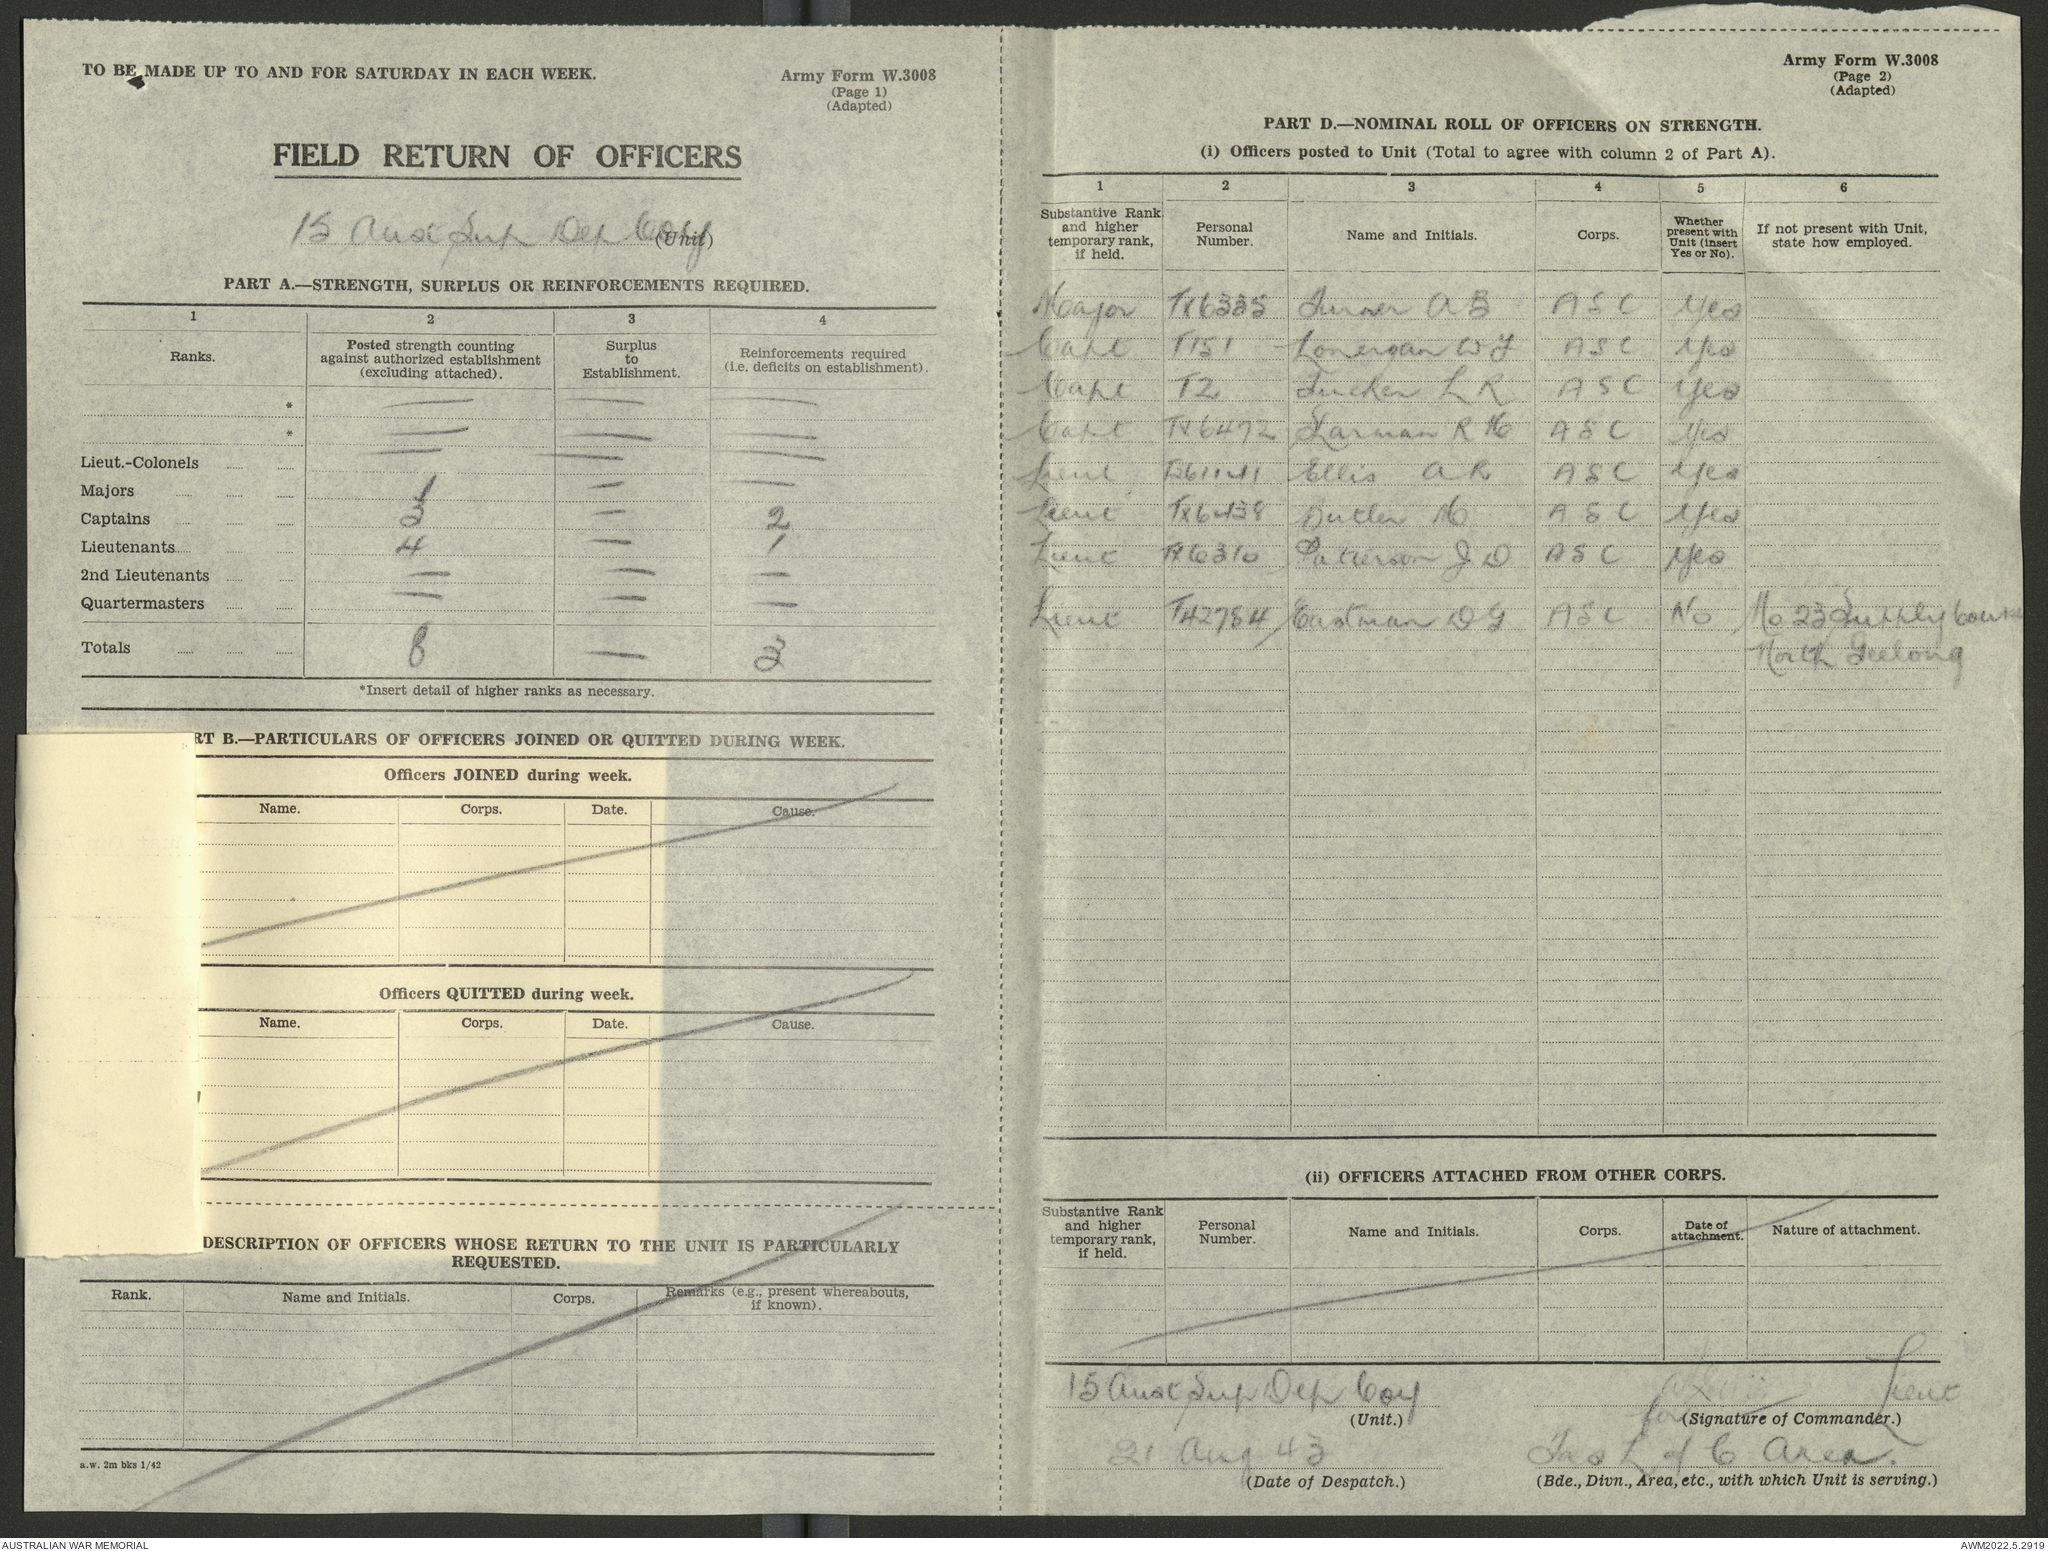 TO BE MADE UP TO AND FOR SATURDAY IN EACH WEEK.
Army Form W.3008
(Page 1)
(Adapted)
FIELD RETURN OF OFFICERS
15 Aust Sup Dep Coy
(Unit)
PART A.—STRENGTH, SURPLUS OR REINFORCEMENTS REQUIRED.
1 2 3 4
Ranks. Posted strength counting against authorized establishment (excluding attached). Surplus to Establishment. Reinforcements required (i.e. deficits on establishment).
* — — —
* — — —
Lieut.-Colonels — — —
Majors 1 — —
Captains 3 — 2
Lieutenants 4 — 1
2nd Lieutenants — — —
Quartermasters — — —
Totals 8 — 3
*Insert detail of higher ranks as necessary.
RT B.—PARTICULARS OF OFFICERS JOINED OR QUITTED DURING WEEK.
Officers JOINED during week.
Name. Corps. Date. Cause.
Officers QUITTED during week.
Name. Corps. Date. Cause.
DESCRIPTION OF OFFICERS WHOSE RETURN TO THE UNIT IS PARTICULARLY
REQUESTED.
Rank. Name and Initials. Corps. Remarks (e.g., present whereabouts, if known).
a.w. 2m bks 1/42
Army Form W.3008
(Page 2)
(Adapted)
PART D.—NOMINAL ROLL OF OFFICERS ON STRENGTH.
(i) Officers posted to Unit (Total to agree with column 2 of Part A).
1 2 3 4 5 6
Substantive Rank and higher temporary rank, if held. Personal Number. Name and Initials. Corps. Whether present with Unit (insert Yes or No). If not present with Unit, state how employed.
Major TX6335 Turner A B ASC Yes
Capt T151 Lonergan W J ASC Yes
Capt T2 Tucker L R ASC Yes
Capt TX6472 Harman R H ASC Yes
Lieut Ellis A R ASC Yes
Lieut TX6438 Butler H ASC Yes
Lieut TX6310 Patterson J D ASC Yes
Lieut T42784 Eastman D G ASC No No 23 Supply Course
North Geelong
(ii) OFFICERS ATTACHED FROM OTHER CORPS.
Substantive Rank and higher temporary rank, if held. Personal Number. Name and Initials. Corps. Date of attachment. Nature of attachment.
15 Aust Sup Dep Coy
(Unit.)
Lieut
for (Signature of Commander.)
21 Aug 43
(Date of Despatch.)
Tas L of C Area.
(Bde., Divn., Area, etc., with which Unit is serving.)
AUSTRALIAN WAR MEMORIAL
AWM2022.5.2919